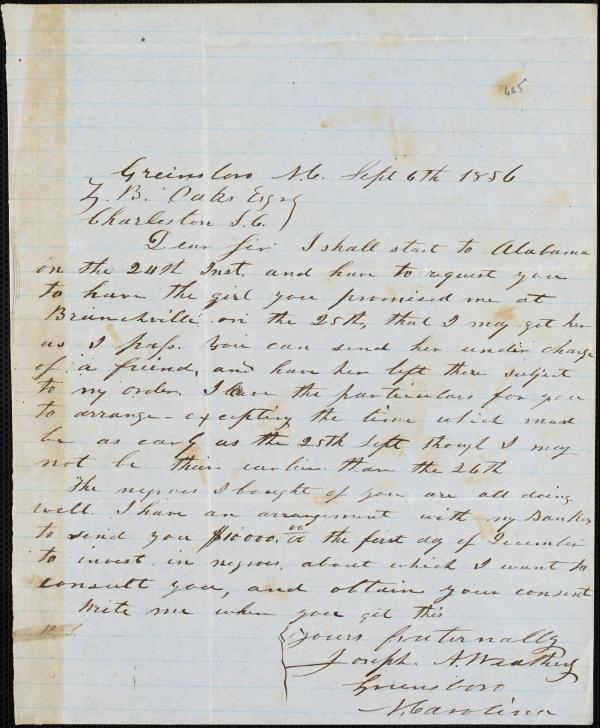 665
Greensboro N.C. Sept 6th 1856
Z. B. Oakes Esqr
Charleston S.C.
Dear Sir. I shall start to Alabama
on the 24th Inst, and have to request you
to have the girl you promised me at
Branchville on the 25th, that I may get her
as I pass. You can send her under charge
of a friend, and have her left there subject
to my order. I leave the particulars for you
to arrange excepting the time which must
be as early as the 25th Sept, though I may
not be there earlier than the 26th
The negroes I bought of you are all doing
well. I have an arrangement with my Banker
to send you $10000.00 the first day of December
to invest in negroes, about which I want to
consult you, and obtain your consent
Write me when you get this
Yours fraternally
Joseph A. Weatherly
Greensboro
N. Carolina